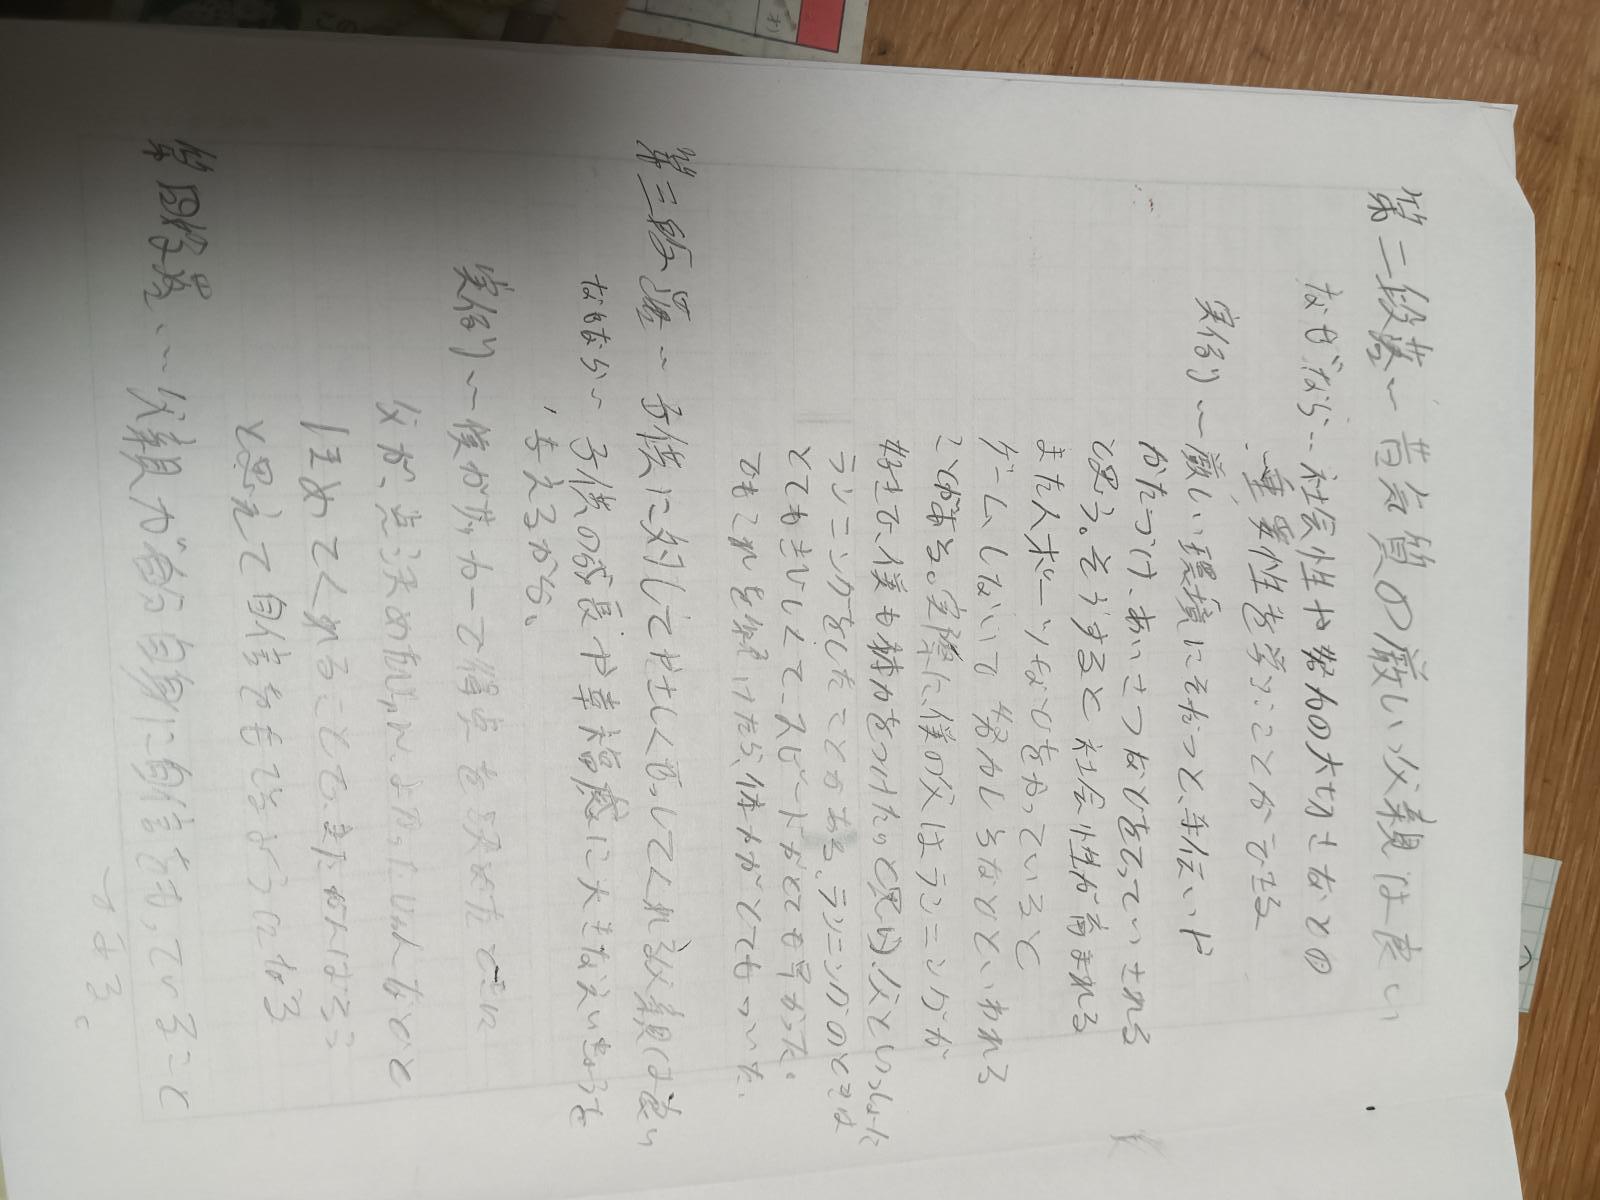 第二段落〜昔気質の厳しい父親は良い
なぜなら…社会性や努力の大切さなどの
重要性を学ぶことができる
実例〜厳しい環境にそだつと、手伝いや
かたづけ、あいさつなどを言っていされる
と思う。そうすると社会性が育まれる
また人ボーツなどをやっていると
ゲームしないで努力しろなどといわれる
ことがある。実際に僕の父はランニングが
好きで、僕も体力をつけたいと思い父といっしょに
ランニングをしたことがある、ランニングのときは
とてもきびしくて、スピードがとても早かった。
でもこれを続けたら、体力がとてもついた。
第三段落〜子供に対してやさしく
てくれる父親は良い
なぜなら〜子供の成長や幸福感に大きなえいきょうを
与えるから。
実例〜僕が
父が
任せてくれることで、
と思えて自信をもてるようになる
第四段落…父親が自分自身に自信をもっていること
である。